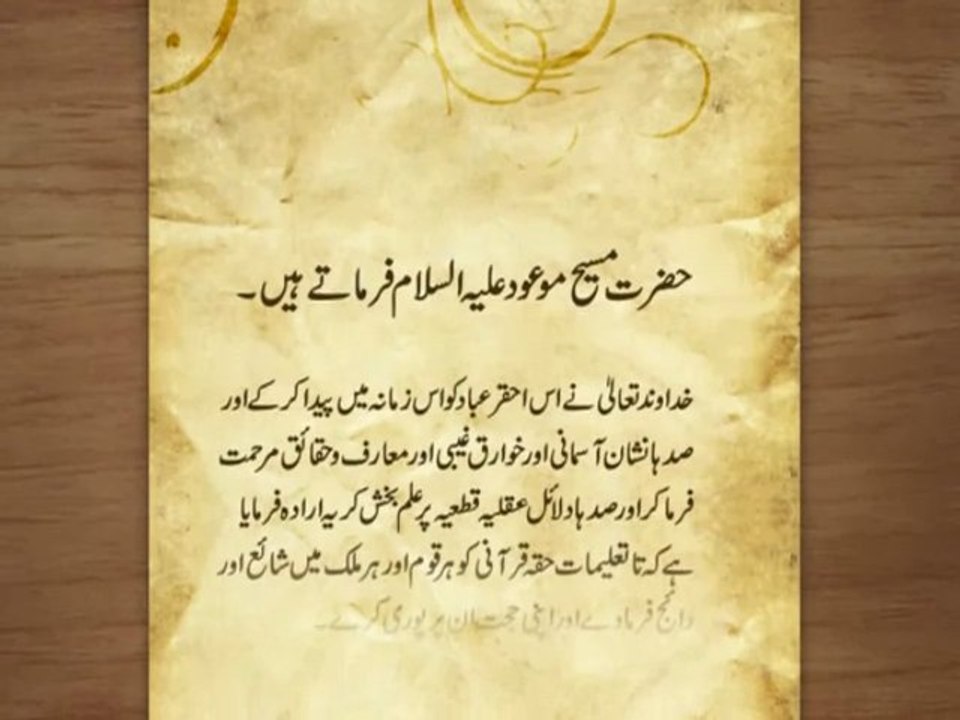 حضرت مسیح موعود علیہ السلام فرماتے ہیں۔
خداوند تعالیٰ نے اس احقر عباد کو اس زمانہ میں پیدا کر کے اور
صدہا نشان آسمانی اور خوارق غیبی اور معارف و حقائق مرحمت
فرما کر اور صدہا دلائل عقلیہ قطعیہ پر علم بخش کر یہ ارادہ فرمایا
ہے کہ تا تعلیمات حقہ قرآنی کو ہر قوم اور ہر ملک میں شائع اور
رائج فرماوے اور اپنی حجت ان پر پوری کرے۔